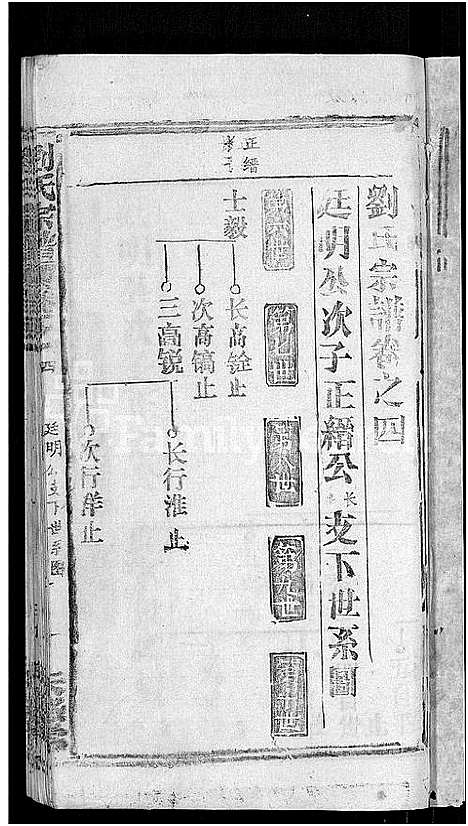 劉氏宗譜卷之四
廷明公次子正縉公長支下世系圖
第六世
第七世
第八世
第九世
第十世
正縉
長子
士毅
长高铨止
次高镐止
三高锐
长行淮止
次行洋止
劉氏宗譜
卷之四
廷明公支下世系圖